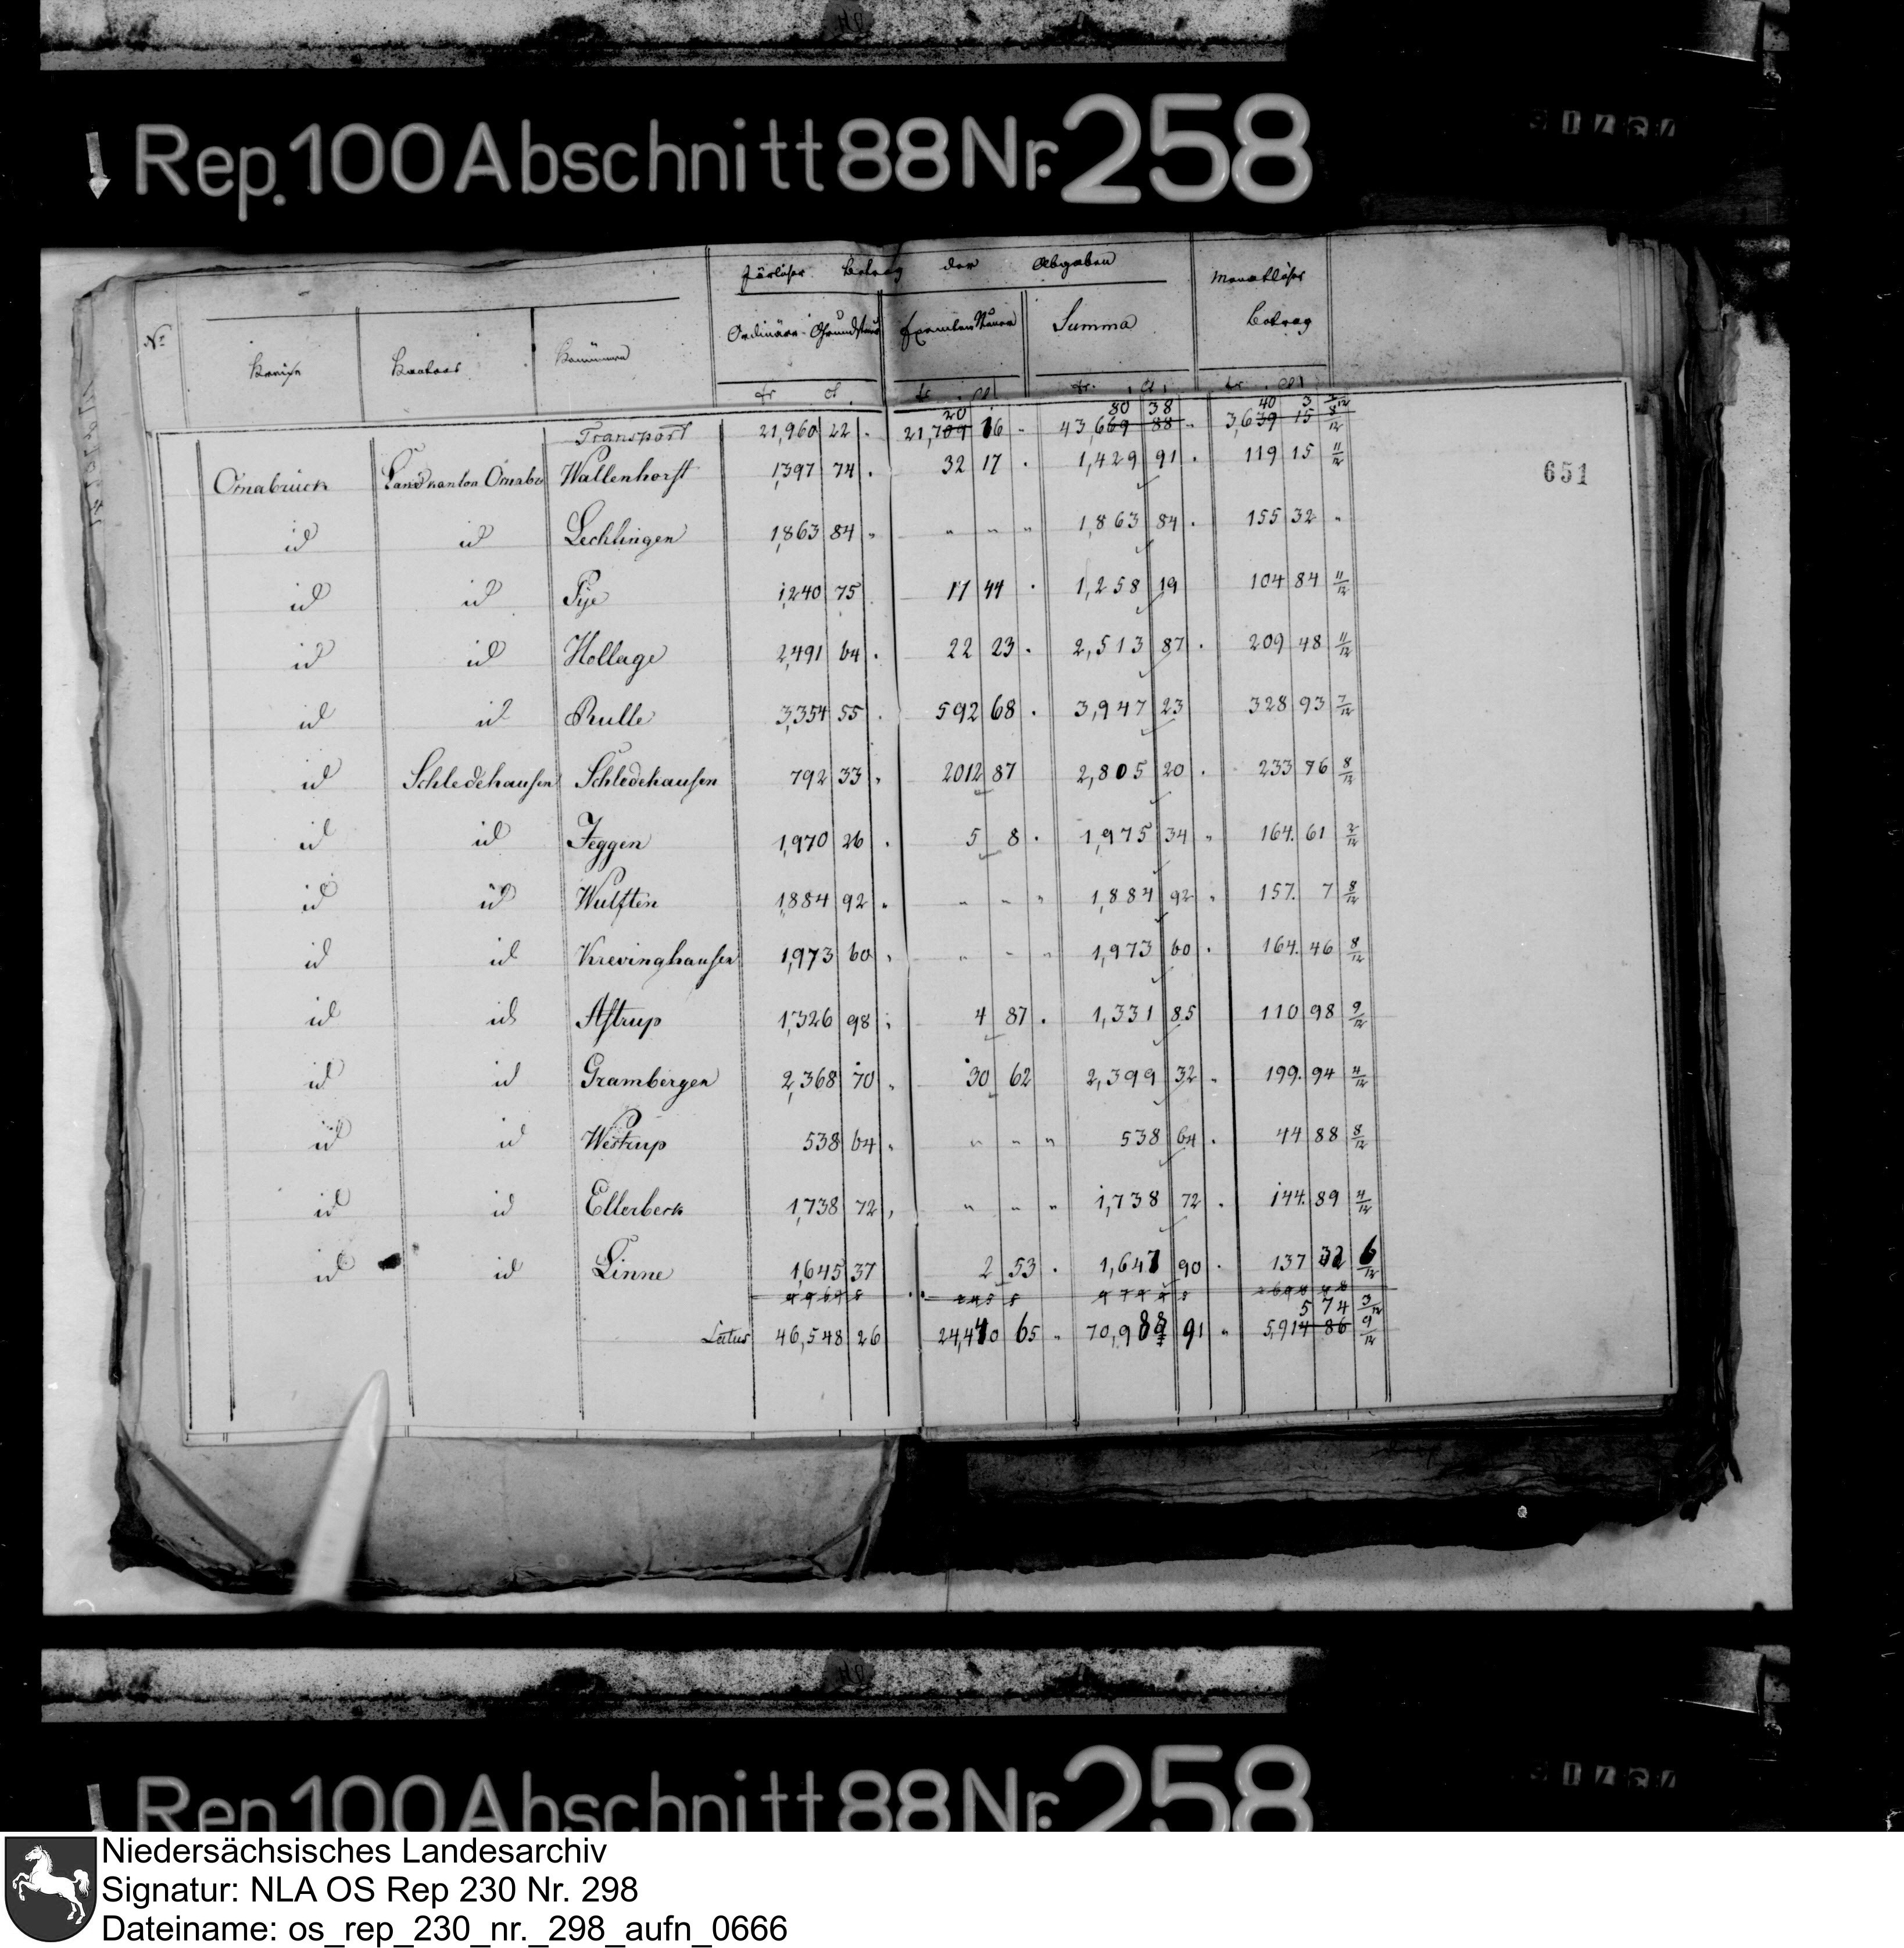 Rep. 100 Abschnitt 88 Nr. 258
Järlicher Betrag der Abgaben
Monatlicher Betrag
No Kreise Kantons Kommunen Ordinäre Grundsteuer Exemten Steuer Summa
fr ct fr ct fr. ct. fr ct
20 80 38 40 3
Transport 21,960 22 . 21,709 16 " 43,669 88 " 3,639 15 8/12
Osnabrück Landkanton Osnabr Wallenhorst 1,397 74 . 32 17 . 1,429 91 . 119 15 11/12
651
id id Lechlingen 1,863 84 " " " " 1,863 84 . 155 32 "
id id Pije 1,240 75 17 44 . 1,258 19 104 84 11/12
id id Hollage 2,491 64 . 22 23 . 2,513 87 . 209 48 11/12
id id Rulle 3,354 55 . 592 68 . 3,947 23 328 93 7/12
id Schledehausen Schledehausen 792 33 , 2012 87 2,805 20 . 233 76 8/12
id id Jeggen 1,970 26 . 5 8 . 1,975 34 " 164. 61 2/12
id id Wulften 1,884 92 . " " " 1,884 92 " 157. 7 8/12
id id Krevinghausen 1,973 60 , " " " 1,973 60 . 164. 46 8/12
id id Astrup 1,326 98 ; 4 87 . 1,331 85 110 98 9/12
id id Grambergen 2,368 70 , 30 62 2,399 32 " 199. 94 4/12
id id Westrup 538 64 , " " " 538 64 . 44 88 8/12
id id Ellerbeck 1,738 72 , " " " 1,738 72 . 144. 89 4/12
id id Linne 1,645 37 2 53 . 1,647 90 . 137 32 6/12
5 74 3/12
Latus 46,548 26 24,440 65 " 70,988 91 " 5,914 86 9/12
Rep 100 Abschnitt 88 Nr. 258
Niedersächsisches Landesarchiv
Signatur: NLA OS Rep 230 Nr. 298
Dateiname: os_rep_230_nr._298_aufn_0666